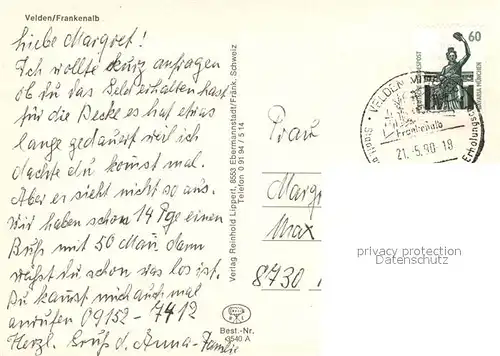 Velden/Frankenalb
Liebe Margret!
Ich wollte kurz anfragen
ob du das Geld erhalten hast
für die Decke es hat etwas
lange gedauert weil ich
dachte du kommst mal.
Aber es sieht nicht so aus.
Wir haben schon 14 Tge einen
Bus mit 50 Man. dann
weißt du schon was los ist.
Du kannst mich auch mal
anrufen 09152-7412
Herzl. Gruß d. Anna-Familie
Verlag Reinhold Lippert, 8553 Ebermannstadt/Fränk. Schweiz
Telefon 0 91 94 / 5 14
Best.-Nr.
3540 A
60
DEUTSCHE BUNDESPOST
BAVARIA MÜNCHEN
VELDEN, MI
Frankenalb
21.-5.90-18
Erholungs
Frau
Margr
Max
8730
privacy protection
Datenschutz